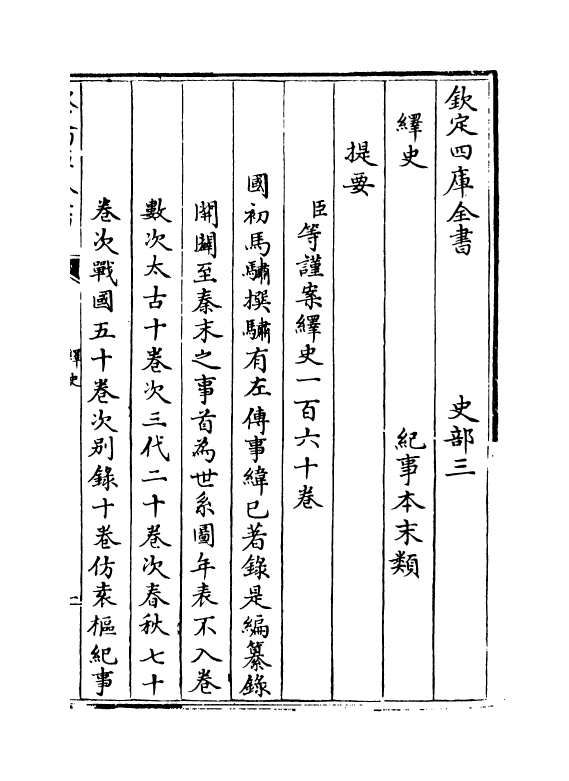 欽定四庫全書　史部三
繹史　紀事本末類
提要
臣等謹案繹史一百六十卷
國初馬驌撰驌有左傳事緯已著錄是編纂錄
開闢至秦末之事首為世系圖年表不入卷
數次太古十卷次三代二十卷次春秋七十
卷次戰國五十卷次別錄十卷仿袁樞紀事
繹史